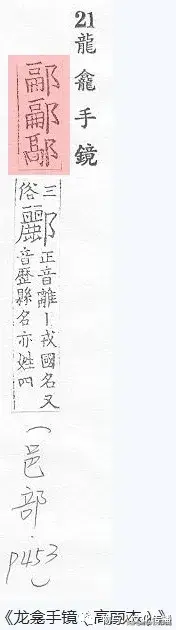 21 龍龕手鏡
三俗
酈
正音離丨戎國名又
音歷縣名亦姓四
(邑部 p453)
《龙龛手镜（高丽本）》